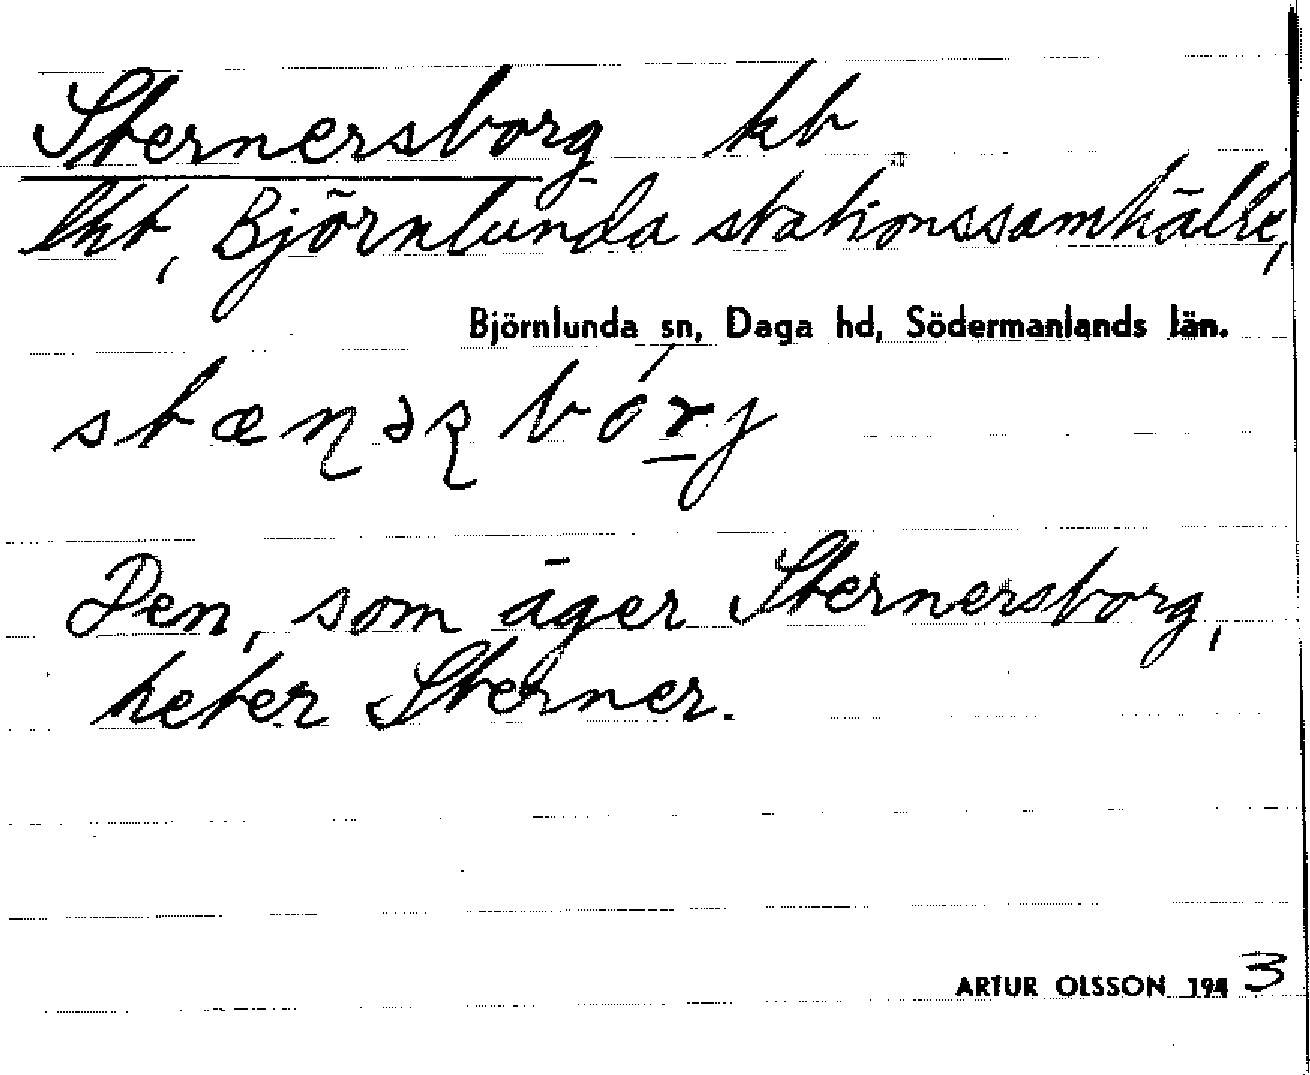 Sternersborg kb
lht, Björnlunda stationssamhälle,
Björnlunda sn, Daga hd, Södermanlands län.
stæɳəʂbórj
Den, som äger Sternersborg,
heter Sterner.
ARTUR OLSSON 1943